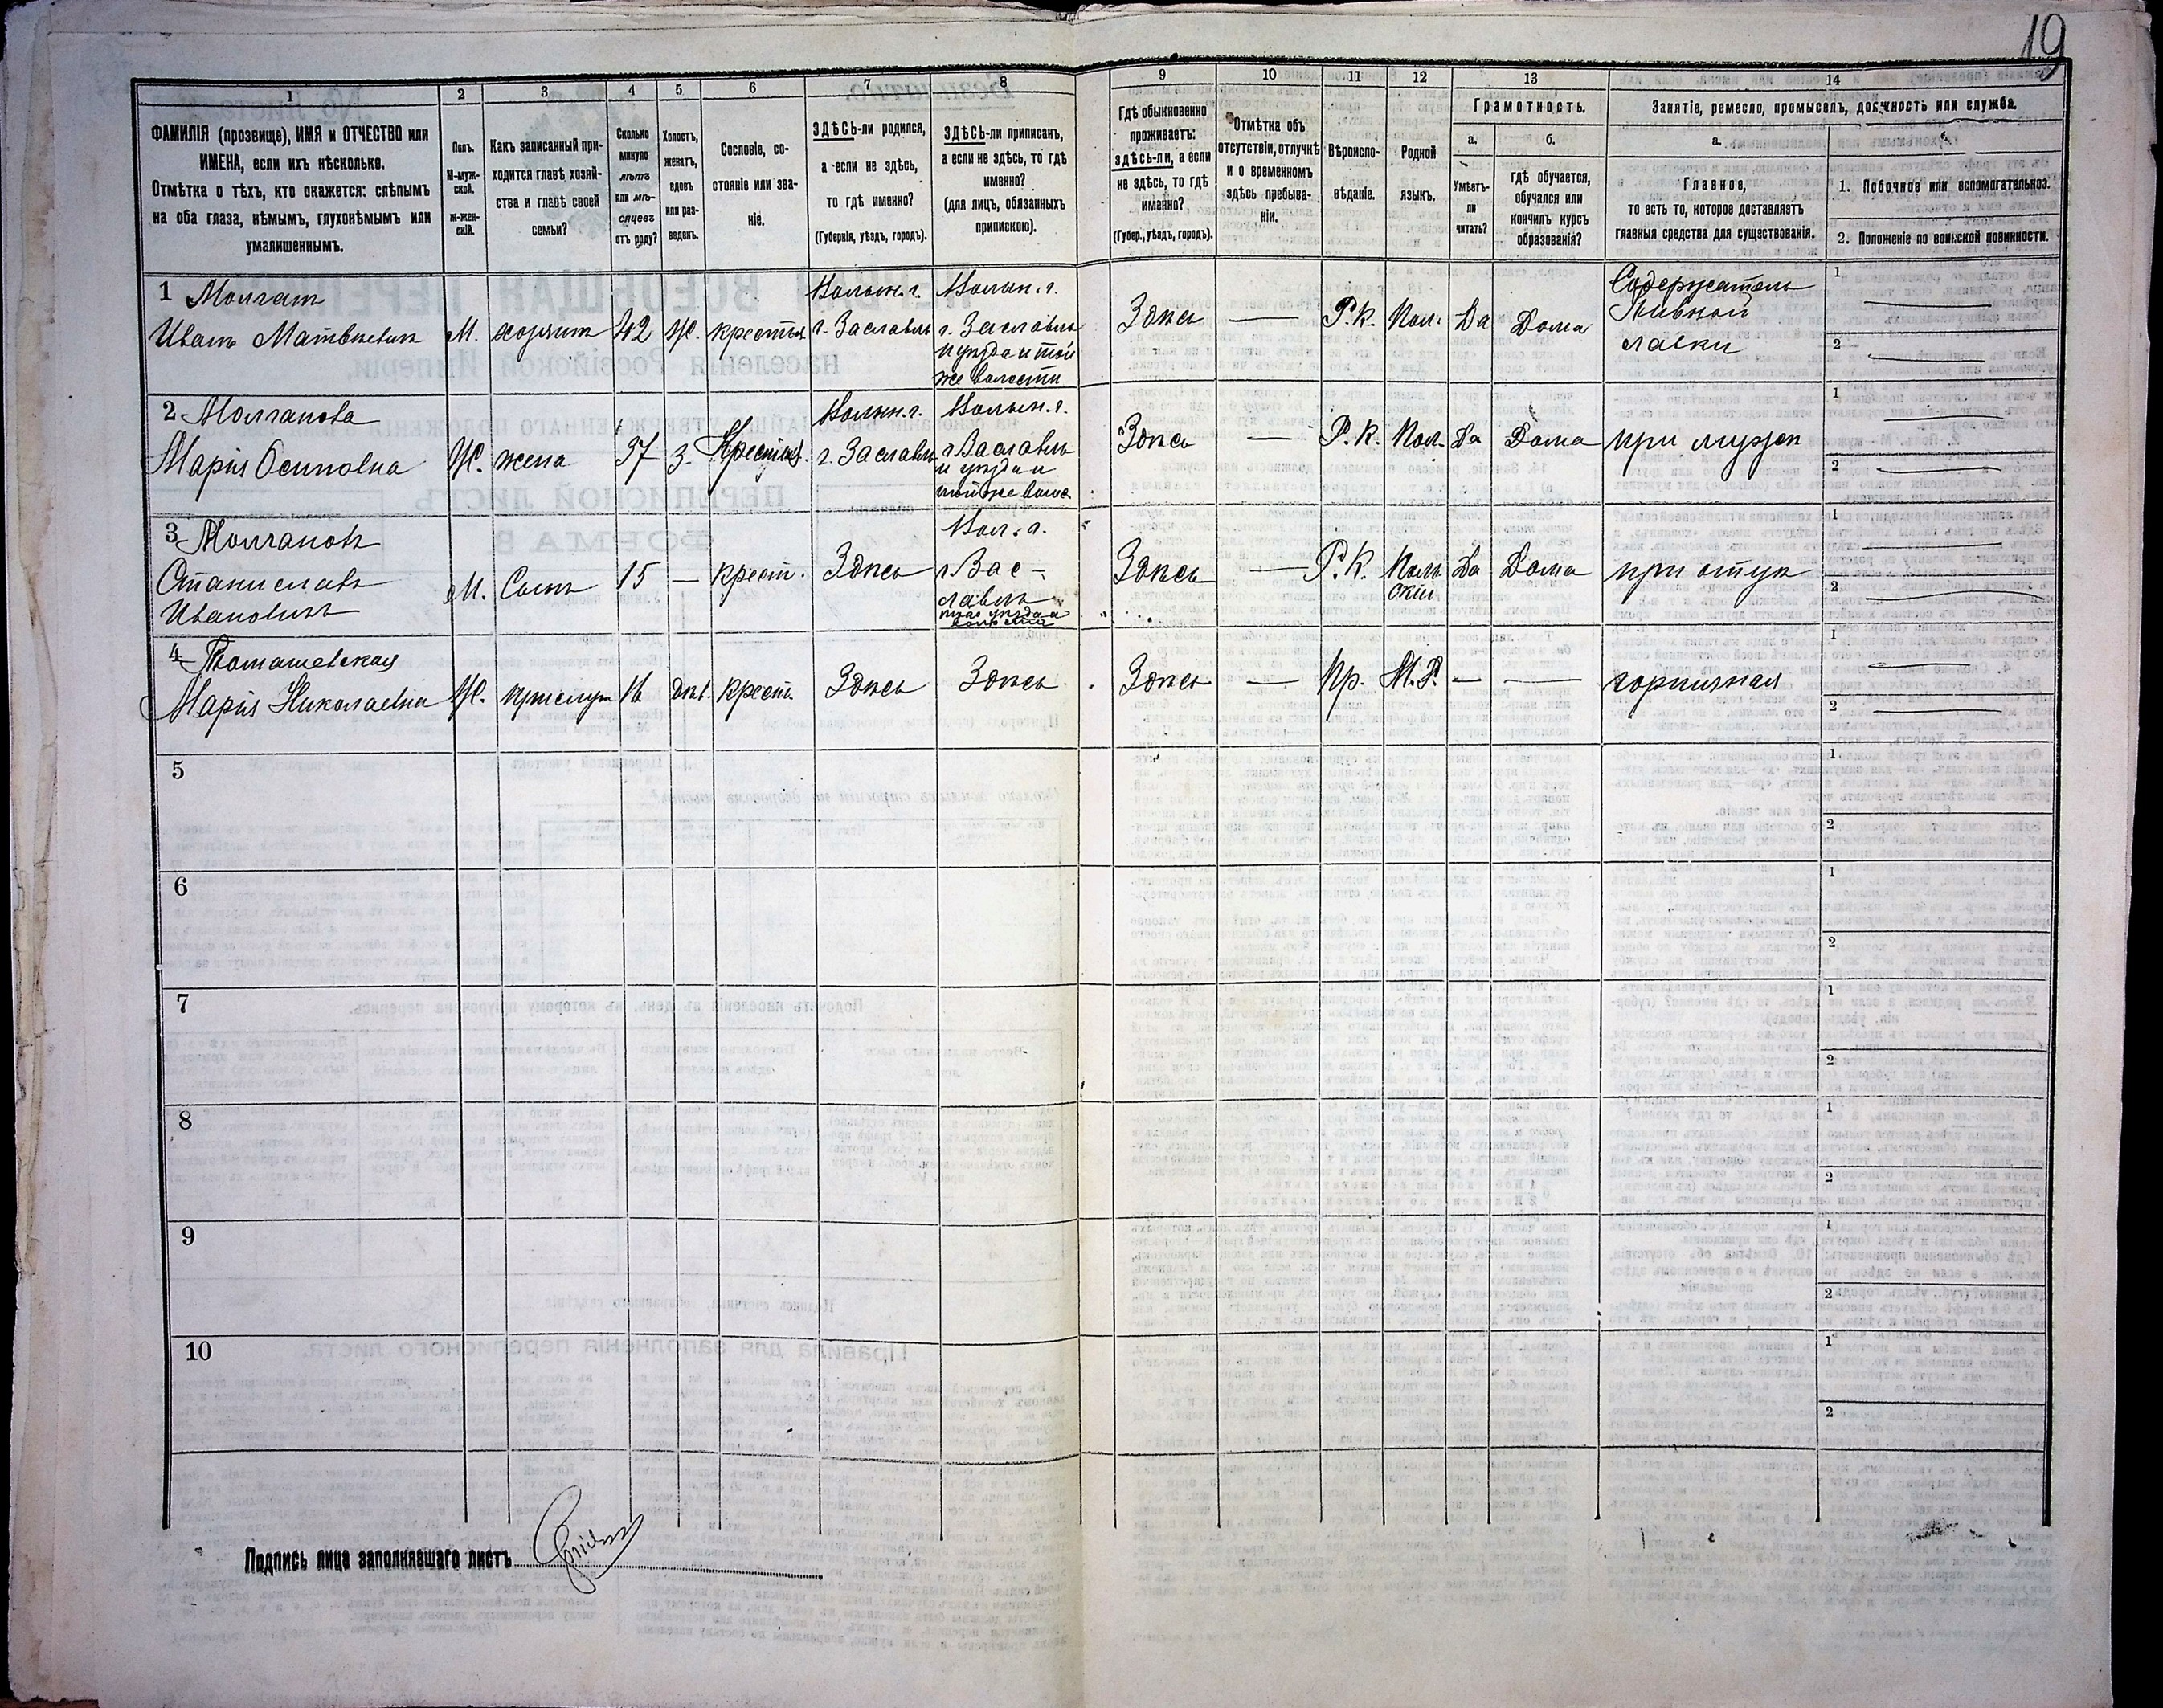 19
1
2
3
4
5
6
7
8
9
10
11
12
13
14
ФАМИЛІЯ (прозвище), ИМЯ и ОТЧЕСТВО или
ИМЕНА, если ихъ нѣсколько.
Отмѣтка о тѣхъ, кто окажется: слѣпымъ
на оба глаза, нѣмымъ, глухонѣмымъ или
умалишеннымъ.
Полъ.
М-муж-
ской.
ж-жен-
скій.
Какъ записанный при-
ходится главѣ хозяй-
ства и главѣ своей
семьи?
Сколько
минуло
лѣтъ
или мѣ-
сяцевъ
отъ роду?
Холостъ,
женатъ,
вдовъ
или раз-
веденъ.
Сословіе, со-
стояніе или зва-
ніе.
ЗДѢСЬ-ли родился,
а если не здѣсь,
то гдѣ именно?
(Губернія, уѣздъ, городъ).
ЗДѢСЬ-ли приписанъ,
а если не здѣсь, то гдѣ
именно?
(для лицъ, обязанныхъ
припискою).
Гдѣ обыкновенно
проживаетъ:
здѣсь-ли, а если
не здѣсь, то гдѣ
именно?
(Губер., уѣздъ, городъ).
Отмѣтка объ
отсутствіи, отлучкѣ
и о временномъ
здѣсь пребыва-
ніи.
Вѣроиспо-
вѣданіе.
Родной
языкъ.
Грамотность.
а.
Умѣетъ-
ли
читать?
б.
гдѣ обучается,
обучался или
кончилъ курсъ
образованія?
Занятіе, ремесло, промыселъ, должность или служба.
а.
Главное,
то есть то, которое доставляетъ
главныя средства для существованія.
1. Побочное или вспомогательное.
2. Положеніе по воинской повинности.
1 Молчан
Иванъ Матвѣевич
М.
хозяин
42
Ж.
крестья
Волын. г.
г. Заславль
Волын. г.
г. Заславль
и уѣзда и той
же волости
Здѣсь
—
Р.К.
Пол.
Да
Дома
Содержатель
Пивной
лавки
1
2
2 Молчанова
Марія Осиповна
Ж.
жена
37
З.
Крестья
Волын. г.
г. Заславль
Волын. г.
г. Заславль
и уѣзда и
той же воло.
Здѣсь
—
Р.К.
Пол.
Да
Дома
при мужѣ
1
2
3 Молчановъ
Станиславъ
Ивановичъ
М.
Сынъ
15
—
крест.
Здѣсь
Вол. г.
г. Зас-
лавль
Здѣсь
—
Р.К.
Поль
скій
Да
Дома
при отцѣ
1
2
4 Томашевская
Марія Николаевна
Ж.
прислуга
16
дѣв.
крест.
Здѣсь
Здѣсь
Здѣсь
—
Пр.
М.Р.
—
—
горничная
1
2
5
1
2
6
1
2
7
1
2
8
1
2
9
1
2
10
1
2
Подпись лица заполнявшаго листъ